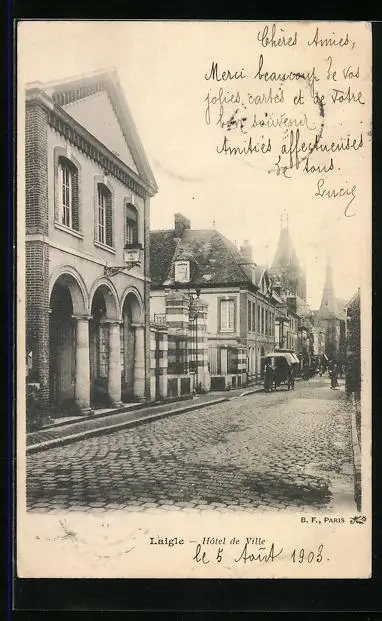 Chères Amies,
Merci beaucoup de vos
jolies cartes et de votre
bon souvenir
Amitiés affectueuses
de tous.
Lucie
B. F., PARIS
LAIGLE – Hôtel de Ville
le 5 Août 1903